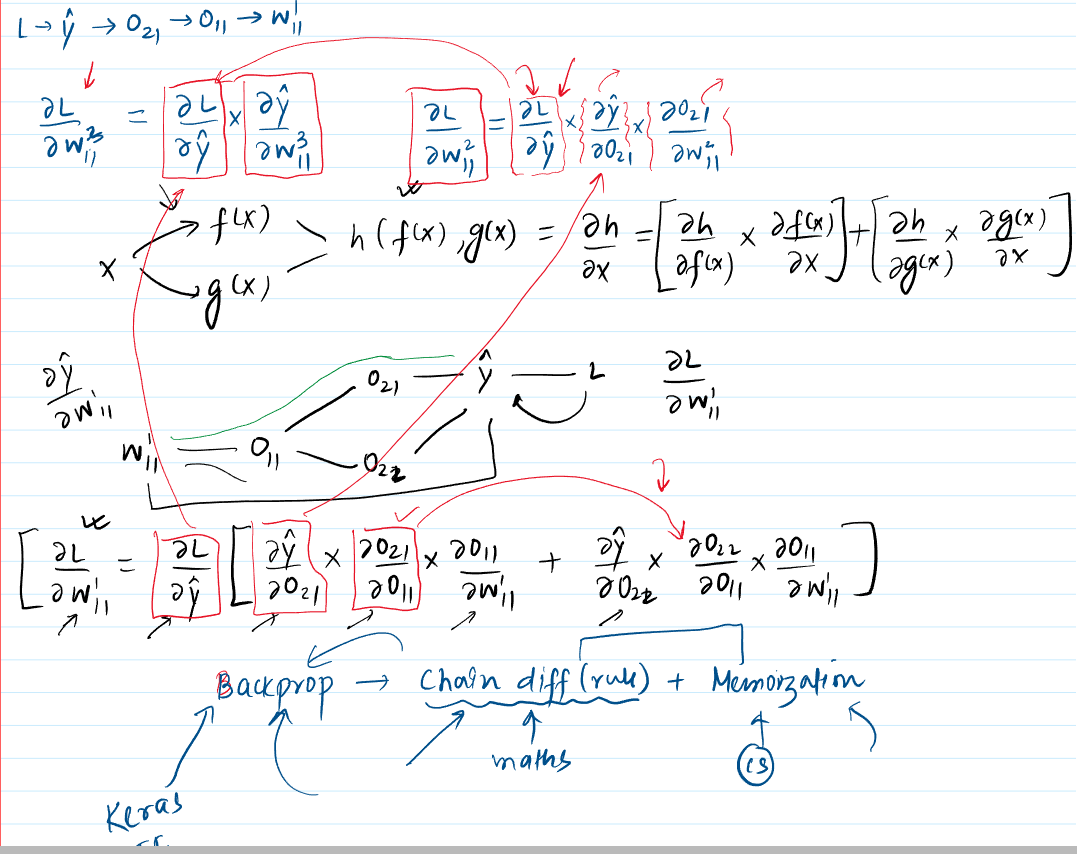 L → ŷ → O₂₁ → O₁₁ → W¹₁₁
∂L/∂W³₁₁ = ∂L/∂ŷ × ∂ŷ/∂W³₁₁    ∂L/∂W²₁₁ = ∂L/∂ŷ × ∂ŷ/∂O₂₁ × ∂O₂₁/∂W²₁₁
f(x)
x    h(f(x), g(x) = ∂h/∂x = [∂h/∂f(x) × ∂f(x)/∂x] + [∂h/∂g(x) × ∂g(x)/∂x]
g(x)
∂ŷ/∂W¹₁₁    O₂₁ — ŷ — L    ∂L/∂W¹₁₁
W¹₁₁ — O₁₁ — O₂₂
[∂L/∂W¹₁₁ = ∂L/∂ŷ [∂ŷ/∂O₂₁ × ∂O₂₁/∂O₁₁ × ∂O₁₁/∂W¹₁₁ + ∂ŷ/∂O₂₂ × ∂O₂₂/∂O₁₁ × ∂O₁₁/∂W¹₁₁]
Backprop → Chain diff (rule) + Memoization
maths    CS
Keras